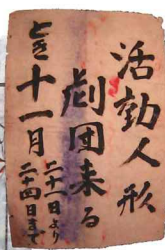 活動人形
劇団来る
とき十一月
二十一日より
二十四日まで